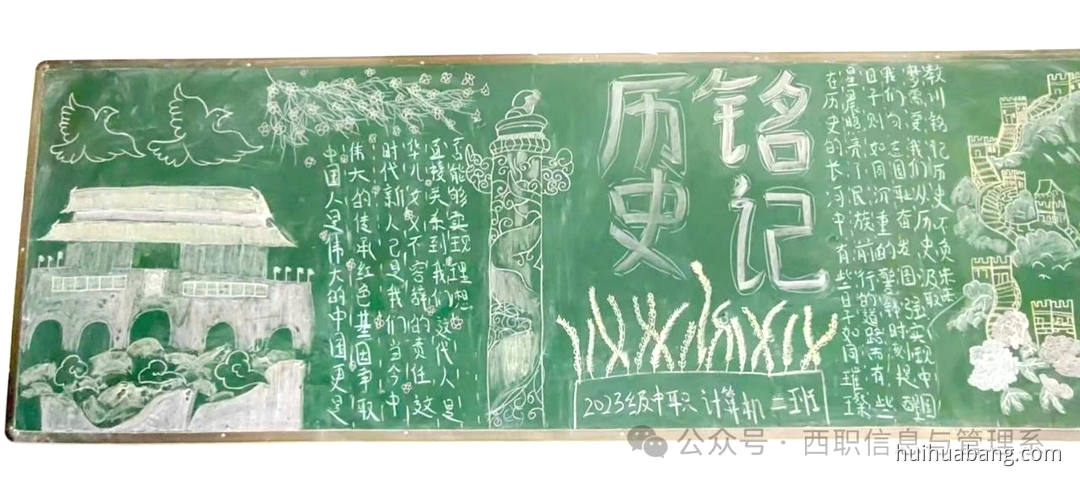 铭记
历史
中国人是伟大的中国更是
伟大的传承红色基因争取
时代新人已是我们当今中
华儿女义不容辞的责任这
直接关系到我们这代人是
否能够实现理想
在历史的长河中,有些日子如同璀璨
星晨照亮了民族前行的道路而有些
日子则如同沉重的警钟时刻提醒
我们勿忘国耻奋发图强实现中国
梦需要我们从历史汲取
教训铭记历史不负未来
2023级中职计算机二班
公众号·西职信息与管理系
huihuabang.com